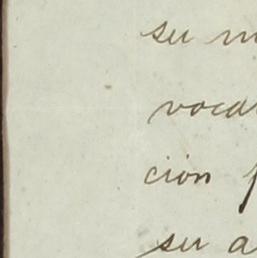 su
voca
cion
su a